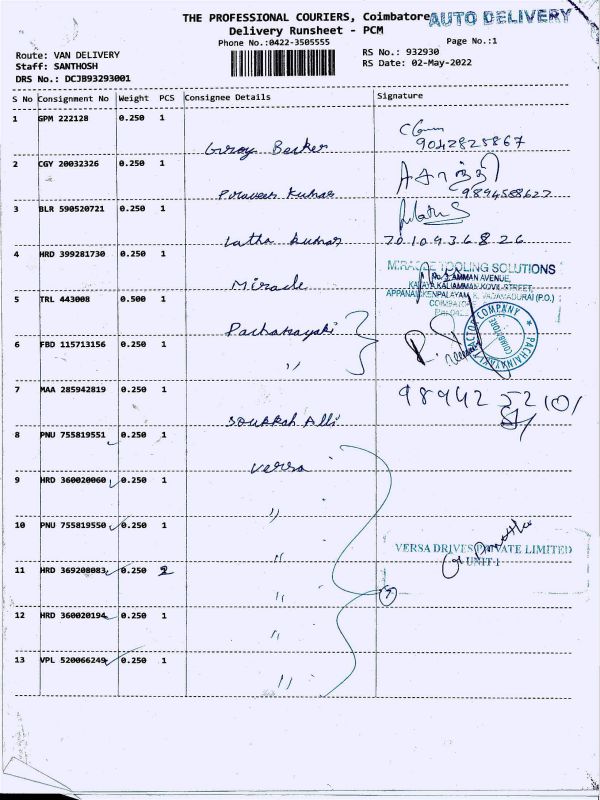 THE PROFESSIONAL COURIERS, Coimbatore
AUTO DELIVERY
Delivery Runsheet - PCM
Phone No.:0422-3505555
Page No.:1
Route: VAN DELIVERY
RS No.: 932930
Staff: SANTHOSH
RS Date: 02-May-2022
DRS No.: DCJB93293001
S No Consignment No Weight PCS Consignee Details Signature
1 GPM 222128 0.250 1
9042825867
2 CGY 20032326 0.250 1
Praveen Kumar 9894588627
3 BLR 590520721 0.250 1
Latha Kumar 7010936826
4 HRD 399281730 0.250 1
Miracle
MIRACLE TOOLING SOLUTIONS
AMMAN AVENUE,
KALIAMMAN KOVIL STREET,
VADAMADURAI (P.O.)
5 TRL 443008 0.500 1
Pachainayaki
COMPANY
COIMBATORE
6 FBD 115713156 0.250 1
"
7 MAA 285942819 0.250 1
98942 52101
8 PNU 755819551 0.250 1
Versa
9 HRD 360020060 0.250 1
"
10 PNU 755819550 0.250 1
"
VERSA DRIVES PRIVATE LIMITED
UNIT-1
11 HRD 369208083 0.250 2
"
7
12 HRD 360020194 0.250 1
"
13 VPL 520066249 0.250 1
"